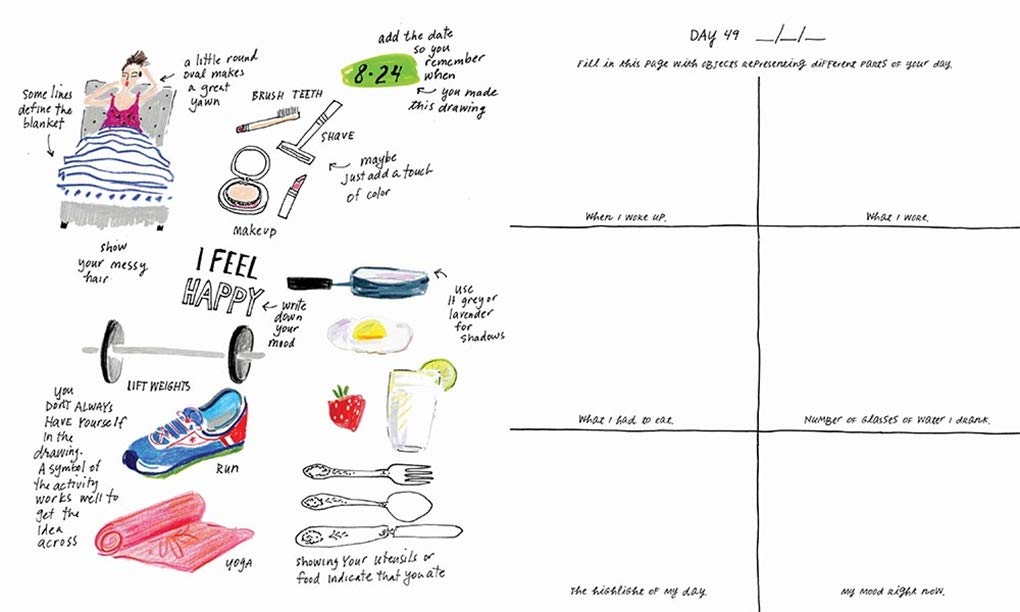 a little round
oval makes
a great
yawn
Some lines
define the
blanket
add the date
so you
remember
when
you made
this drawing
8·24
BRUSH TEETH
SHAVE
maybe
just add a touch
of color
makeup
show
your messy
hair
I FEEL
HAPPY
write
down
your
mood
use
lt grey or
lavender
for
shadows
LIFT WEIGHTS
you
DON'T ALWAYS
HAVE YOURSELF
IN the
drawing.
A symbol of
the activity
works well to
get the
idea
across
RUN
YOGA
showing your utensils or
food indicate that you ate
DAY 49 __/__/__
Fill in this page with objects representing different parts of your day.
When I woke up.
What I wore.
What I had to eat.
Number of glasses of water I drank.
The highlight of my day.
My mood right now.